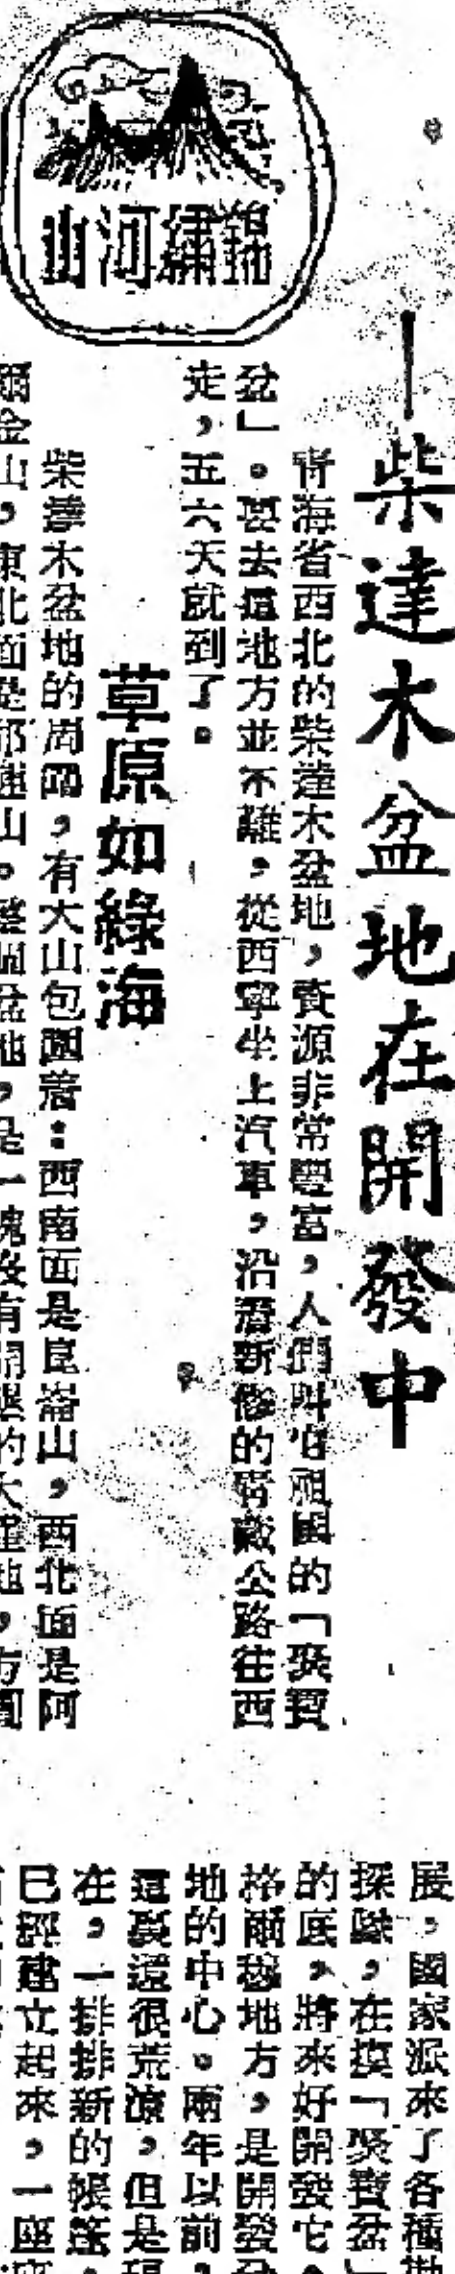 錦繡河山
—柴達木盆地在開發中
青海省西北的柴達木盆地，資源非常豐富，人們叫它祖國的「聚寶
盆」。要去這地方並不難，從西寧坐上汽車，沿着新修的青藏公路往西
走，五六天就到了。
草原如綠海
柴達木盆地的周圍，有大山包圍着：西南面是崑崙山，西北面是阿
爾金山，東北面是祁連山。整個盆地，是一塊沒有開墾的大荒地，方圓
展，國家派來了各種勘
探隊，在摸「聚寶盆」
的底，將來好開發它。
格爾穆地方，是開發盆
地的中心。兩年以前，
這裏還很荒涼，但是現
在，一排排新的帳篷，
已經建立起來，一座座